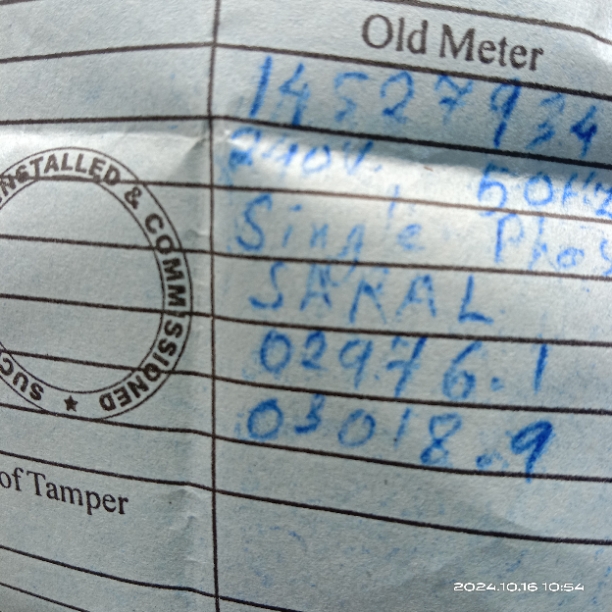 Old Meter
14527934
240V. 50Hz
Single Phas
SAKAL
02976.1
03018.9
INSTALLED & COMMISSIONED ★ SUC
of Tamper
2024.10.16 10:54